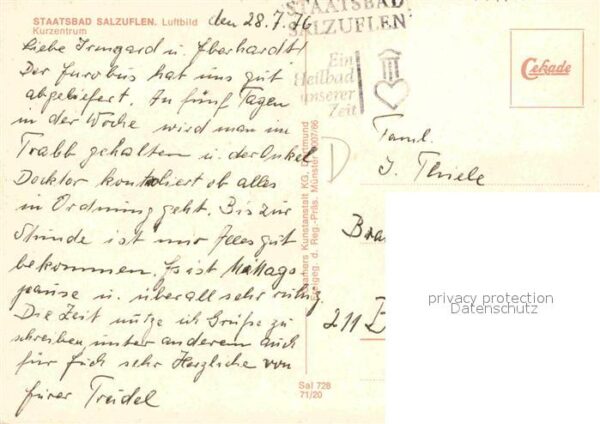 STAATSBAD SALZUFLEN. Luftbild
Kurzentrum
den 28.7.76
Liebe Irmgard u. Eberhardt!
Der Eurobus hat uns gut
abgeliefert. An fünf Tagen
in der Woche wird man im
Trabb gehalten u. der Onkel
Docktor kontroliert ob alles
in Ordnung geht. Bis zur
Stunde ist mir Alles gut
bekommen. Es ist Mittags
pause u. überall sehr ruhig.
Die Zeit nutze ich Grüße zu
schreiben, unter anderem auch
für Euch sehr Herzliche von
Eurer Treidel
STAATSBAD
SALZUFLEN
Ein
Heilbad
unserer
Zeit
Cekade
Faml.
J. Thiele
D
Bra
211
Kunstanstalt KG, Dortmund
d. Reg.-Präs. Münster
Sal 728
71/20
privacy protection
Datenschutz